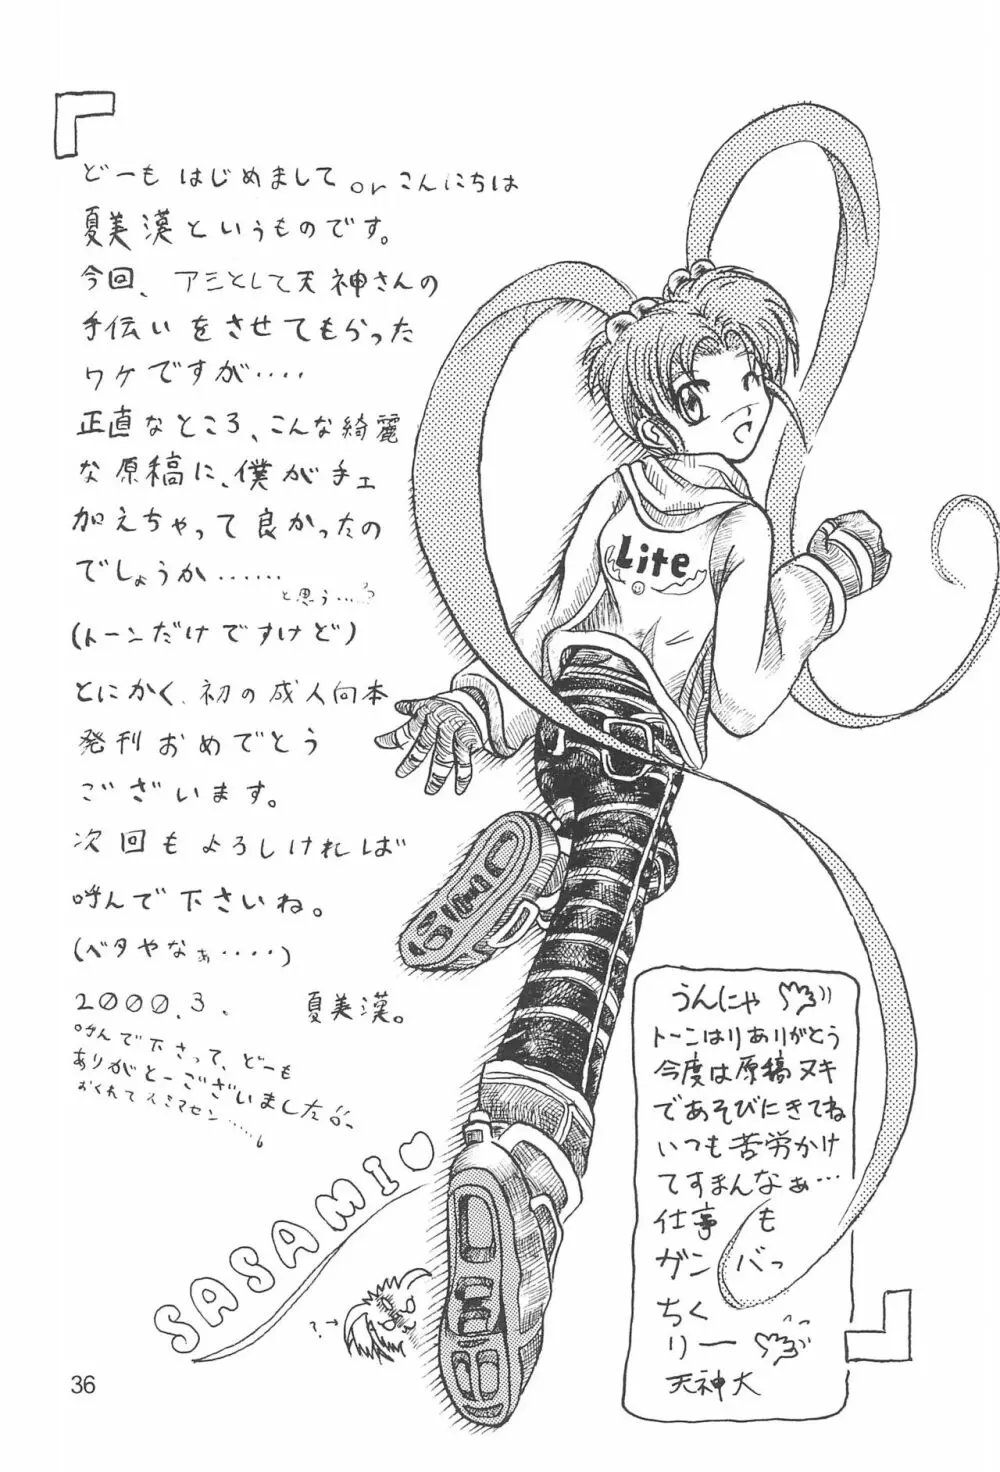 どーも はじめまして or こんにちは
夏美漢というものです。
今回、アシとして天神さんの
手伝いをさせてもらった
ワケですが‥‥
正直なところ、こんな綺麗
な原稿に、僕がチェ
加えちゃって良かったの
でしょうか‥‥‥
と思う‥‥
(トーンだけですけど)
とにかく、初の成人向本
発刊おめでとう
ございます。
次回もよろしければ
呼んで下さいね。
(ベタやなぁ‥‥‥)
2000.3. 夏美漢。
呼んで下さって、どーも
ありがとーございました
おくれてスミマセン‥‥‥
Lite
SASAMI♡
?→
うんにゃ
トーンはりありがとう
今度は原稿ヌキ
であそびにきてね
いつも苦労かけ
てすまんなぁ…
仕事も
ガンバっ
ちく
りー
天神大
36